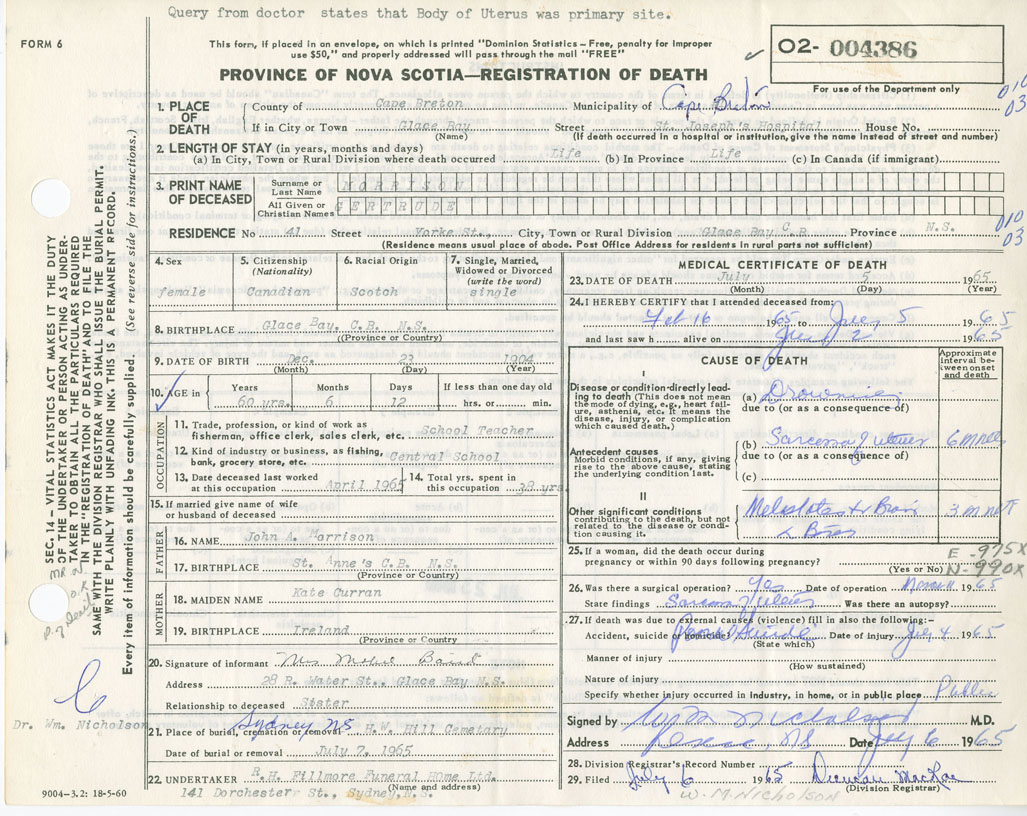 Query from doctor states that Body of Uterus was primary site.
FORM 6
This form, if placed in an envelope, on which is printed "Dominion Statistics – Free, penalty for improper
use $50," and properly addressed will pass through the mail "FREE"
O2- 004386
For use of the Department only
PROVINCE OF NOVA SCOTIA—REGISTRATION OF DEATH
1. PLACE OF DEATH
County of Cape Breton Municipality of Cape Breton
010
03
If in City or Town Glace Bay Street St. Joseph's Hospital House No.
(Name) (If death occurred in a hospital or institution, give the name instead of street and number)
2. LENGTH OF STAY (in years, months and days)
(a) In City, Town or Rural Division where death occurred Life (b) In Province Life (c) In Canada (if immigrant)
3. PRINT NAME OF DECEASED
Surname or Last Name MORRISON
All Given or Christian Names GERTRUDE
RESIDENCE No. 41 Street Yorke St., City, Town or Rural Division Glace Bay C.B Province N.S.
010
03
(Residence means usual place of abode. Post Office Address for residents in rural parts not sufficient)
4. Sex female
5. Citizenship (Nationality) Canadian
6. Racial Origin Scotch
7. Single, Married, Widowed or Divorced (write the word) single
8. BIRTHPLACE Glace Bay, C.B. N.S.
(Province or Country)
9. DATE OF BIRTH Dec. 23 1904
(Month) (Day) (Year)
10. AGE in Years Months Days If less than one day old
60 yrs. 6 12 hrs. or min.
OCCUPATION
11. Trade, profession, or kind of work as
fisherman, office clerk, sales clerk, etc. School Teacher
12. Kind of industry or business, as fishing,
bank, grocery store, etc. Central School
13. Date deceased last worked
at this occupation April 1965
14. Total yrs. spent in
this occupation 38 yrs
15. If married give name of wife
or husband of deceased
FATHER
16. NAME John A. Morrison
17. BIRTHPLACE St. Anne's C.B. N.S.
(Province or Country)
MOTHER
18. MAIDEN NAME Kate Curran
19. BIRTHPLACE Ireland
(Province or Country)
20. Signature of informant Mrs
Address 28 R. Water St., Glace Bay N.S.
Relationship to deceased Sister
21. Place of burial, cremation or removal Sydney NS H.W. Hill Cemetary
Date of burial or removal July 7, 1965
22. UNDERTAKER R.H. Fillmore Funeral Home Ltd.
(Name and address)
141 Dorchester St., Sydney, N.S.
MEDICAL CERTIFICATE OF DEATH
23. DATE OF DEATH July 5 1965
(Month) (Day) (Year)
24. I HEREBY CERTIFY that I attended deceased from:
Feb 16 1965 to July 5 1965
and last saw h alive on 1965
CAUSE OF DEATH
Approximate interval between onset and death
I
Disease or condition directly leading to death (This does not mean the mode of dying, e.g., heart failure, asthenia, etc. It means the disease, injury, or complication which caused death.)
(a) Drowning
due to (or as a consequence of)
Antecedent causes
Morbid conditions, if any, giving rise to the above cause, stating the underlying condition last.
(b) Sarcoma of uterus
due to (or as a consequence of)
(c)
II
Other significant conditions
contributing to the death, but not related to the disease or condition causing it.
25. If a woman, did the death occur during
pregnancy or within 90 days following pregnancy?
(Yes or No)
E-975X
N-990X
26. Was there a surgical operation? Yes Date of operation 1965
State findings Sarcoma of uterus Was there an autopsy?
27. If death was due to external causes (violence) fill in also the following:-
Accident, suicide or homicide? Suicide Date of injury July 4 1965
(State which)
Manner of injury
(How sustained)
Nature of injury
Specify whether injury occurred in industry, in home, or in public place Public
Signed by Wm Nicholson M.D.
Address NS Date July 6 1965
28. Division Registrar's Record Number
29. Filed July 6 1965 Duncan MacRae
(Division Registrar)
W. M. NICHOLSON
SEC. 14 – VITAL STATISTICS ACT MAKES IT THE DUTY
OF THE UNDERTAKER OR PERSON ACTING AS UNDER-
TAKER TO OBTAIN ALL THE PARTICULARS REQUIRED
IN THE "REGISTRATION OF DEATH" AND TO FILE THE
SAME WITH THE DIVISION REGISTRAR WHO SHALL ISSUE THE BURIAL PERMIT.
WRITE PLAINLY WITH UNFADING INK-THIS IS A PERMANENT RECORD.
Every item of information should be carefully supplied. (See reverse side for instructions.)
Dr. Wm. Nicholson
9004-3.2: 18-5-60